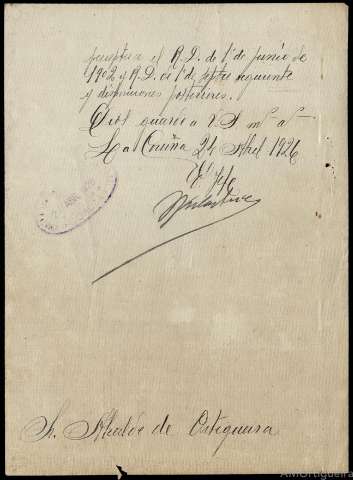 preceptua el R.D. de 1º de junio de
1902 y R.D. de 1º de septre siguiente
y disposiciones posteriores.
Dios guarde a V.S. ms. as.
La Coruña 24 Abril 1926
El Jefe
Sr. Alcalde de Ortigueira
AMOrtigueira